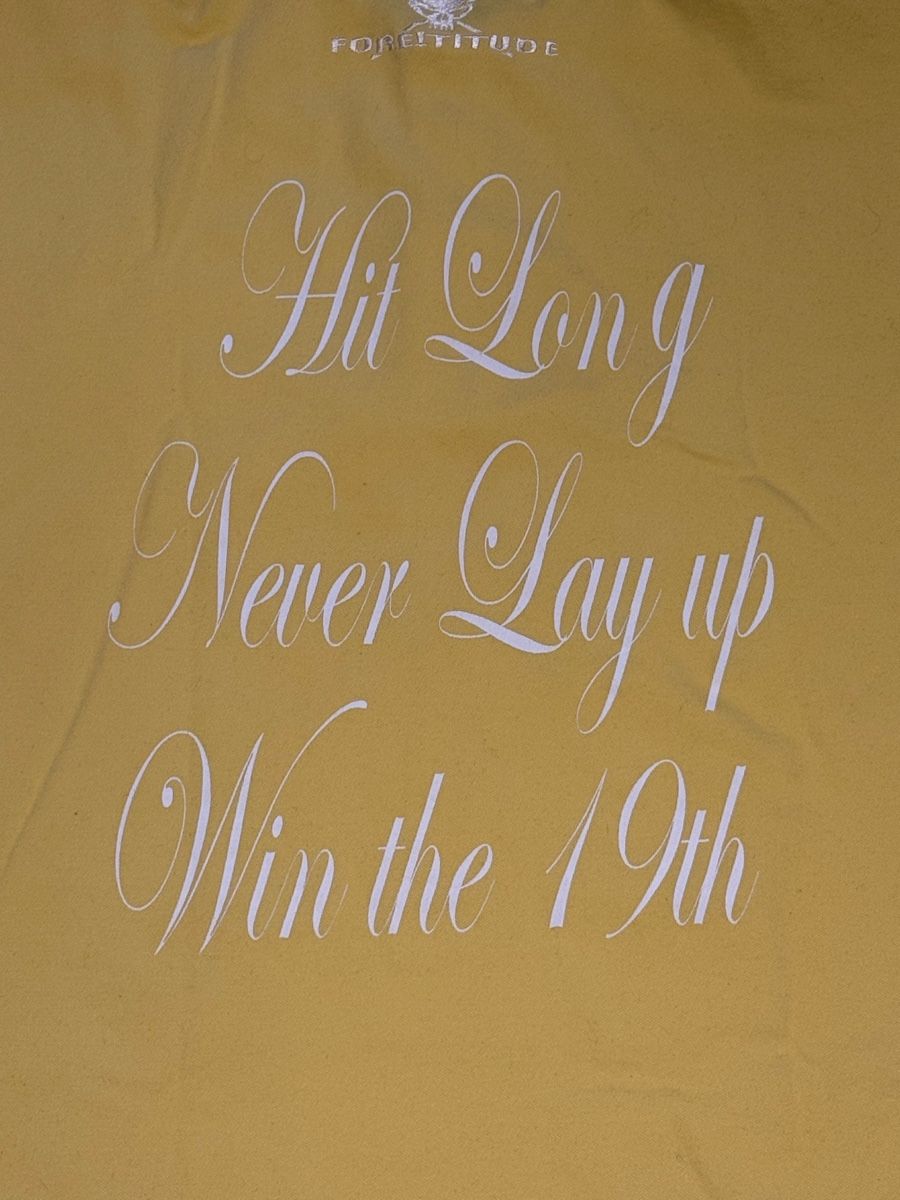 FORE!TITUDE
Hit Long
Never Lay up
Win the 19th